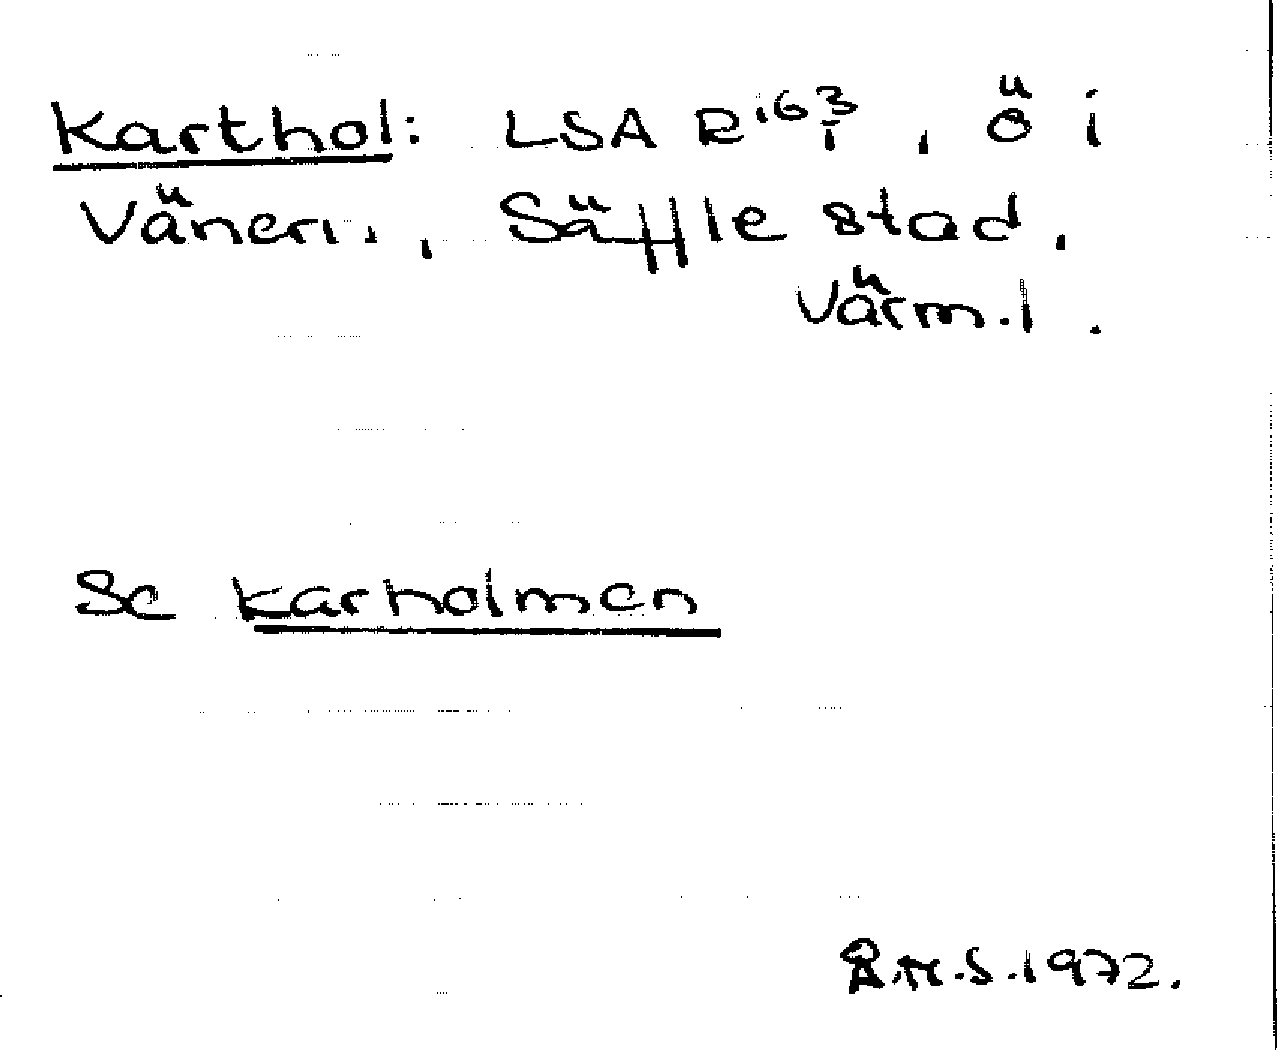 Karthol: LSA R 163/1, ö i
Vänern, Säffle stad,
Värml.
Se Karholmen
Å.H.S. 1972.